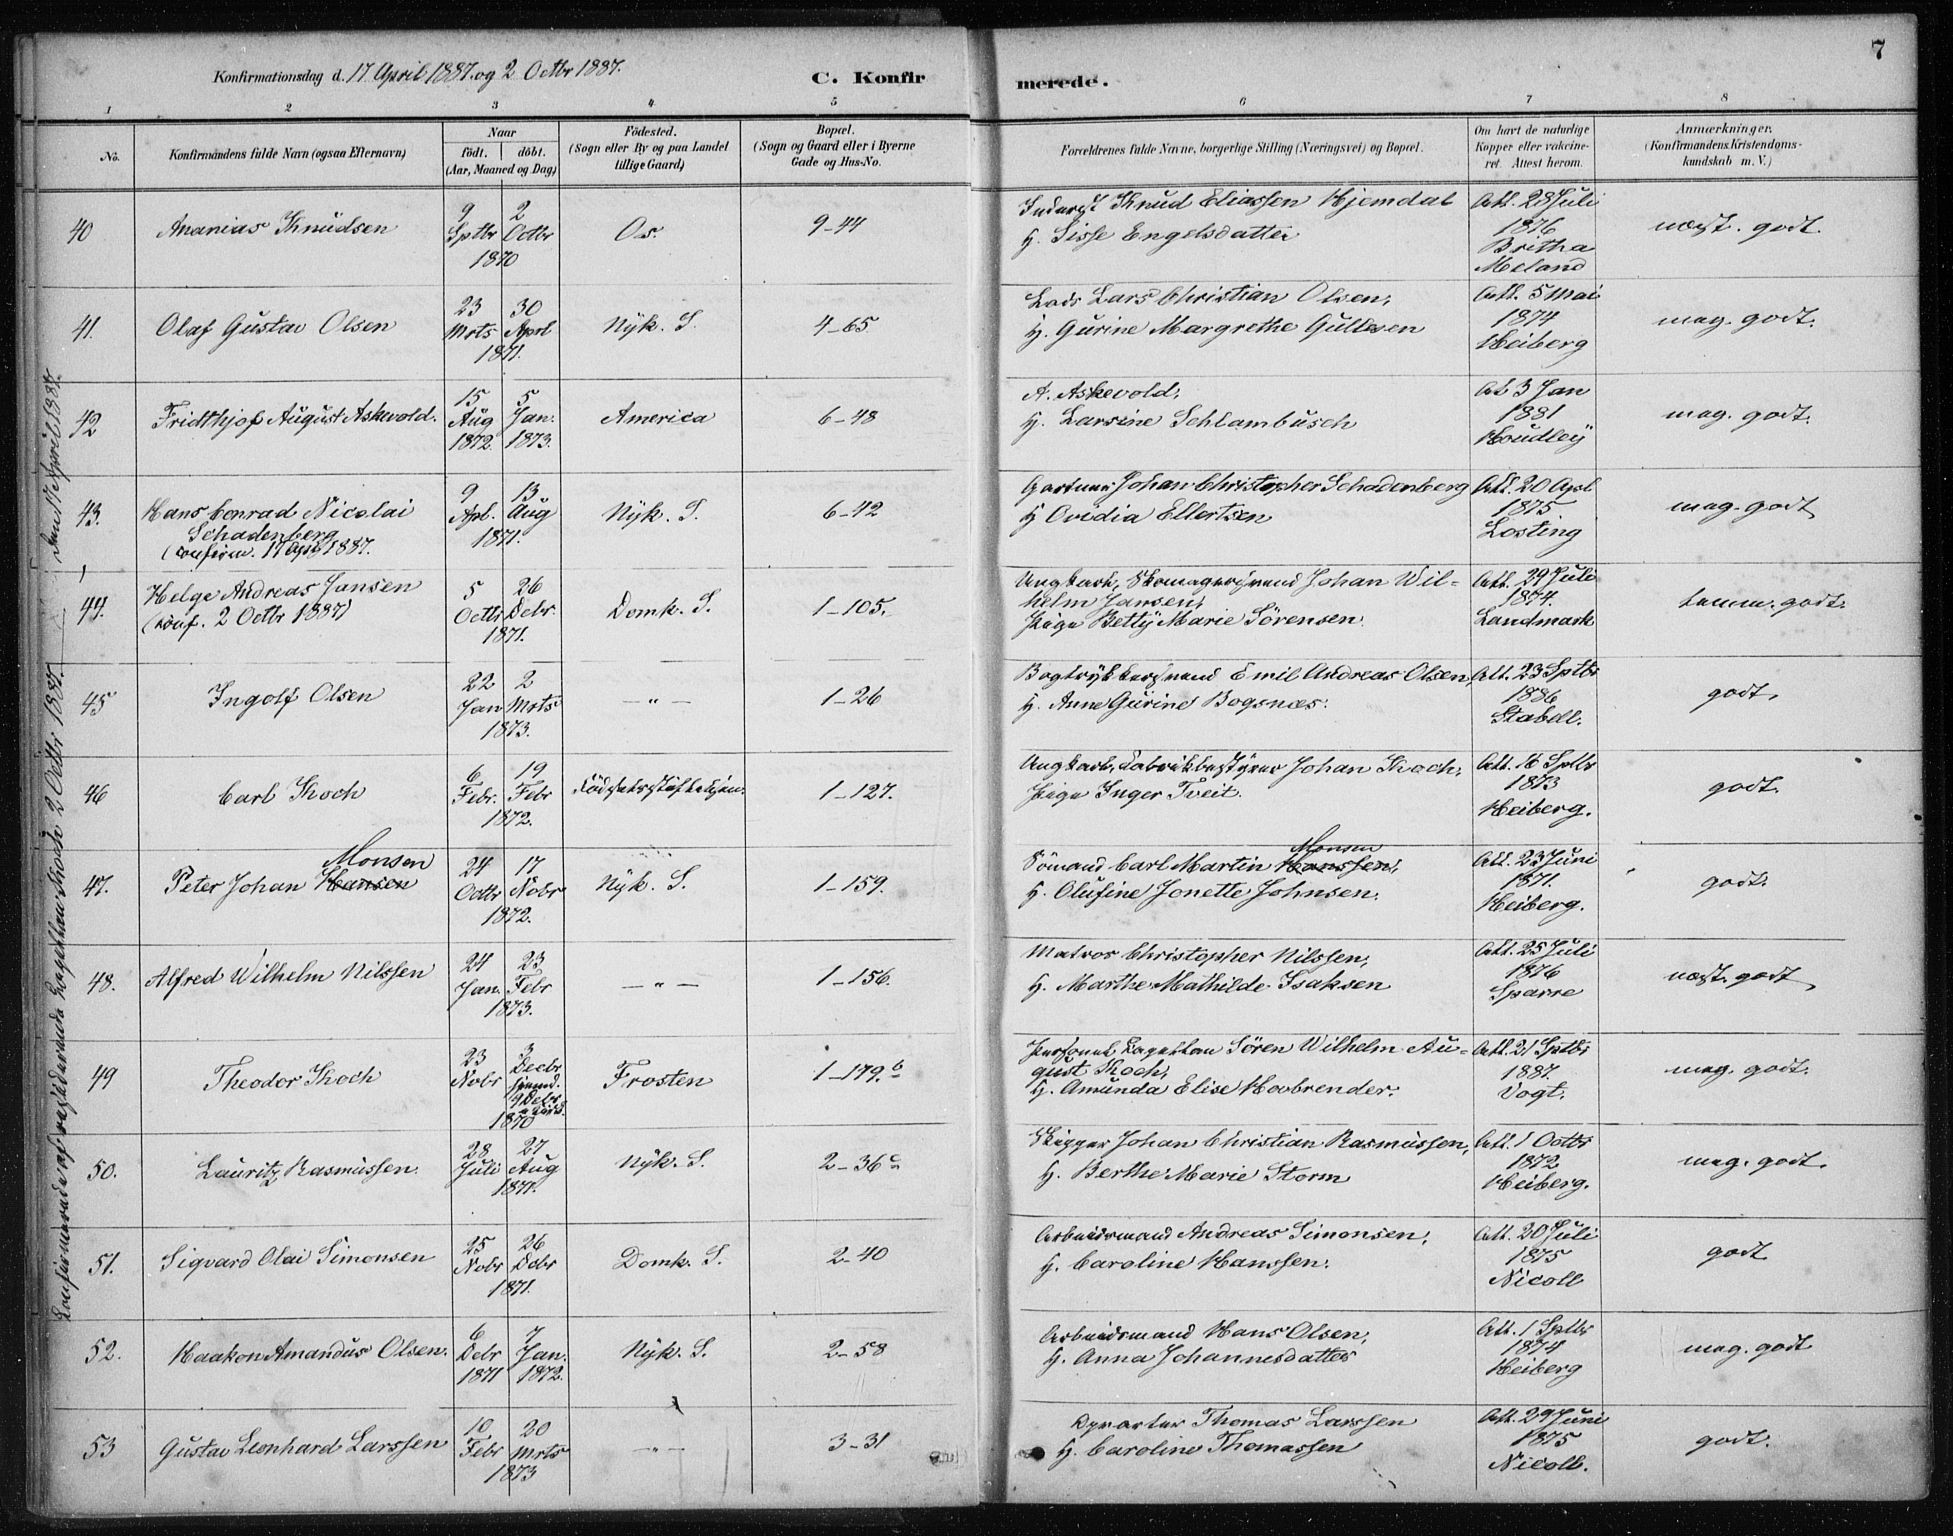 Konfirmationsdag d. 17 April 1887. og 2 Octbr 1887.
C. Konfir
merede.
7
1 2 3 4 5 6 7 8
No.
Konfirmandens fulde Navn (ogsaa Efternavn)
Naar
født. døbt.
(Aar, Maaned og Dag)
Födested.
(Sogn eller By og paa Landet
tillige Gaard)
Bopæl.
(Sogn og Gaard eller i Byerne
Gade og Hus-No.
Forældrenes fulde Navne, borgerlige Stilling (Næringsvei) og Bopæl.
Om havt de naturlige
Kopper eller vakcine-
ret. Attest herom.
Anmærkninger.
(Konfirmandens Kristendoms-
kundskab m. V.)
40 Ananias Knudsen
9 Sptbr 2 Octbr 1870
Os.
9-44
Inderst Knud Eliassen Hjemdal
H. Sisse Engelsdatter
Att. 28 Juli
1876
Britha
Meland
næst. godt.
41. Olaf Gustav Olsen
23 Mrts 30 Aprl 1871.
Nyk. S.
4-65
Lods Lars Christian Olsen,
H. Gurine Margrethe Gullesen
Att. 5 Mai
1874
Heiberg
meg. godt.
42 Fridthjof August Askevold.
15 Aug 1872. 5 Jan. 1873.
America
6-48
A. Askevold,
H. Larsine Schlambusch
At 3 Jan
1881
Houdley
meg. godt.
43. Hans Conrad Nicolai
Schadenberg
(confirm. 17 April 1887.
9 Apl. 13 Aug 1871.
Nyk. S.
6-42
Gartner Johan Christopher Schadenberg
H Ovidia Ellertsen
Att. 20 Apl
1875
Losting
meg. godt
44. Helge Andreas Jansen
(conf. 2 Octbr 1887)
5 Octbr 26 Debr 1871.
Domk. S.
1-105.
Ungkarl, Skomagersvend Johan Wil-
helm Jansen,
Pige Betty Marie Sörensen.
Att. 29 Juli
1874.
Landmark
temm. godt.
45 Ingolf Olsen
22 Jan 2 Mrts 1873.
— " —
1-26
Bogtrykkersvend Emil Andreas Olsen,
H. Anne Gurine Bogsnæs.
Att. 23 Sptbr
1886
Stabell.
godt.
46 Carl Koch
6 Febr. 19 Febr 1872.
Födselsstiftelsen.
1-127.
Ungkarl, Fabrikbestyrer Johan Koch,
Pige Inger Tveit.
Att. 16 Sptbr
1873
Heiberg.
godt.
Monsen
47. Peter Johan Hansen
24 Octbr 17 Nobr 1872.
Nyk. S.
1-159.
Monsen
Sömand Carl Martin Hanssen,
H. Olufine Jonette Johnsen.
Att. 23 Juni
1871.
Heiberg.
godt.
48. Alfred Wilhelm Nilssen
24 Jan. 23 Febr 1873.
— " —
1-156.
Matros Christopher Nilssen,
H. Marthe Mathilde Isaksen
Att. 25 Juli
1876
Sparre
næst. godt
49 Theodor Koch
23 Nobr 3 Decbr 9 Debr 1870
Frosten
1-179.b
Personel Kapellan Sören Wilhelm Au-
gust Koch,
H. Amunda Elise Hovbrender.
Att. 21 Sptbr
1887.
Vogt.
meg. godt.
50. Lauritz Rasmussen.
28 Juli 27 Aug 1871.
Nyk. S.
2-36c
Skipper Johan Christian Rasmussen,
H. Berthe Marie Storm
Att. 1 Octbr
1872
Heiberg.
meg. godt.
51. Sigvard Olai Simonsen
25 Nobr 26 Debr 1871.
Domk. S.
2-40
Arbeidsmand Andreas Simonsen,
H. Caroline Hanssen.
Att. 20 Juli
1875
Nicoll
godt
52. Haakon Amandus Olsen.
6 Debr 1871 7 Jan. 1872.
Nyk. S.
2-58
Arbeidsmand Hans Olsen,
H. Anna Johannesdatter
Att. 1 Sptbr
1874
Heiberg
meg. godt
53 Gustav Leonhard Larssen
10 Febr 20 Mrts 1873
— " —
3-31
Thomas Larssen
H. Caroline Thomassen
Att. 29 Juni
1875
Nicoll.
godt.
Confirmerede af residerende Kapellan Koch 2 Octbr 1887. den 17 April 1887.